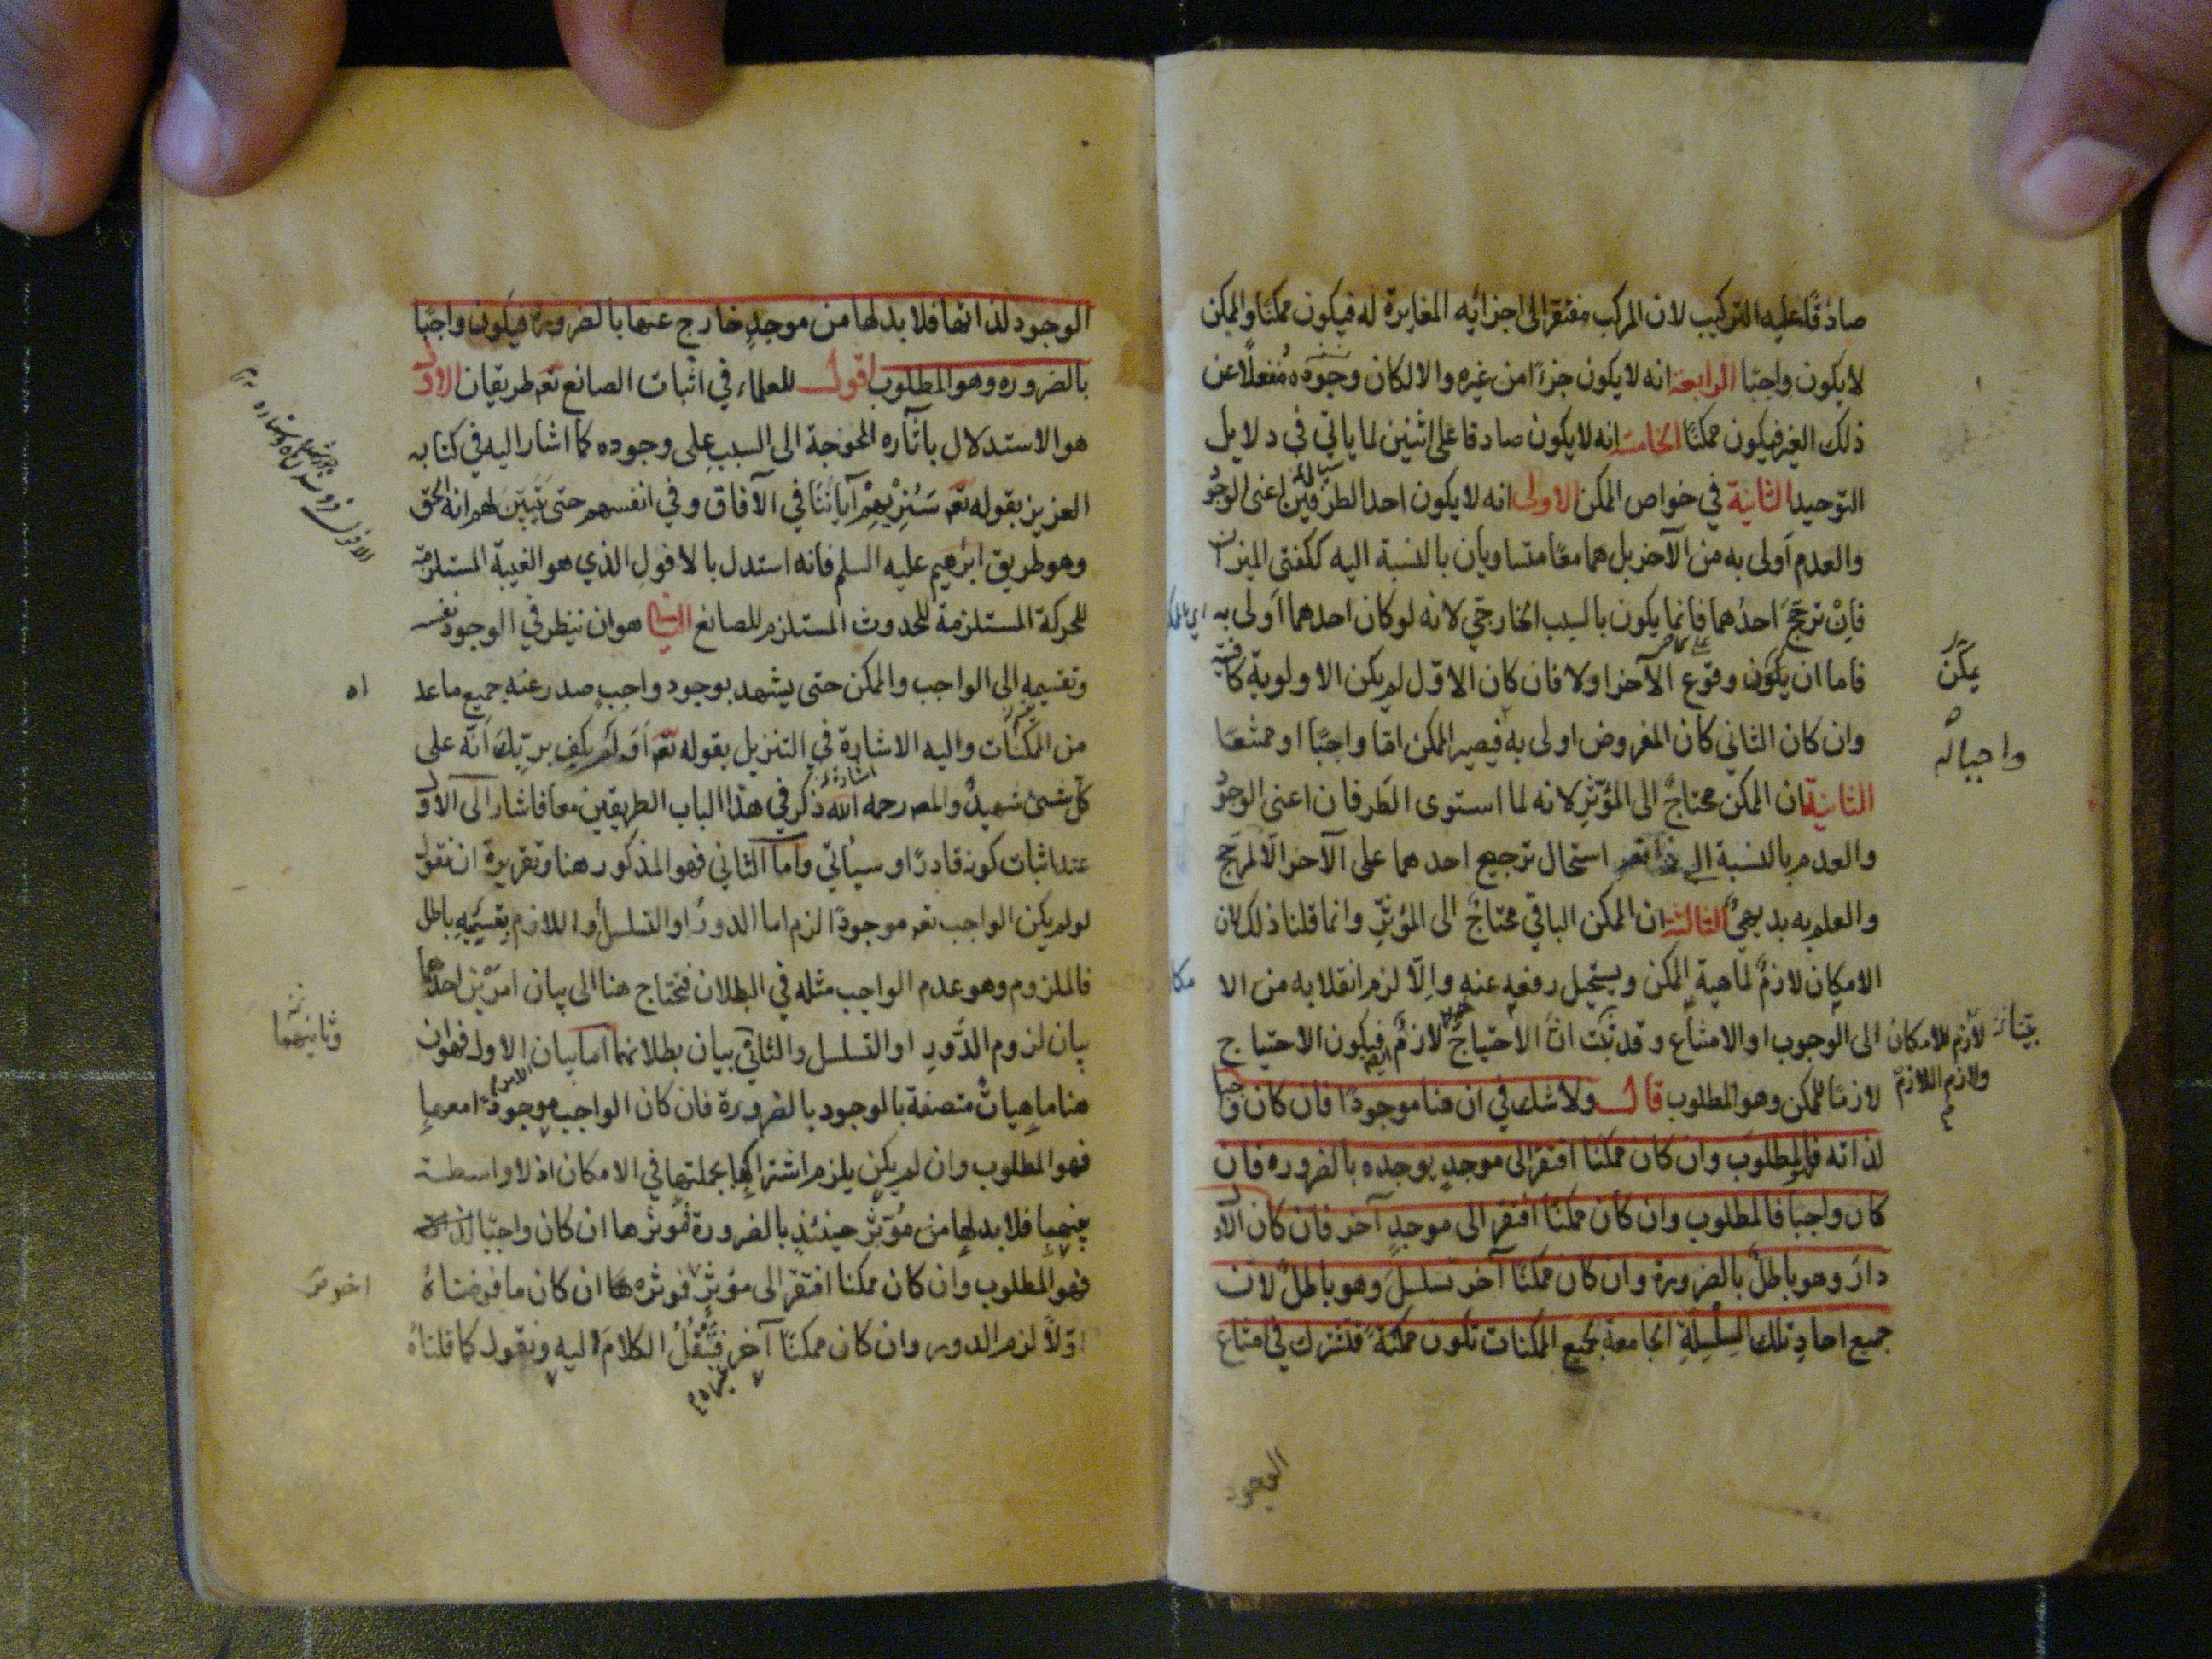 صادقًا عليه التركيب لان المركب مفتقر الى اجزائه المغايرة له فيكون ممكنًا والممكن
لا يكون واجبًا الرابعة انه لا يكون جزءًا من غيره والا لكان وجوده منفعلًا عن
ذلك الغير فيكون ممكنًا الخامسة انه لا يكون صادقا على اثنين لما ياتي في دلايل
التوحيد الثانية في خواص الممكن الاولى انه لا يكون احد الطرفين اعنى الوجود
والعدم اَولى به من الآخر بل هما معًا متساويان بالنسبة اليه ككفتى الميزان
فاِنْ ترجّحَ احدُهما فانما يكون بالسبب الخارجي لانه لو كان احدهما اَولى به
فاما ان يكون وقوع الآخر اولا فان كان الاوّل لم يكن الاولوية كافية
وان كان الثاني كان المفروض اولى به فيصير الممكن امّا واجبًا او ممتنعًا
الثانية ان الممكن محتاجٌ الى المؤثّرِ لانه لما استوى الطرفان اعنى الوجود
والعدم بالنسبة الى ذاته استحال ترجيح احدهما على الآخر الّا لمرجّح
والعلم به بديهىٌّ الثالثة ان الممكن الباقي محتاجٌ الى المؤثّرِ وانما قلنا ذلك لان
الامكان لازمٌ لماهية الممكن ويستحيل رفعه عنه واِلّا لزم انقلابه من الا مكا
الى الوجوب او الامتناع وقد ثبت انّ الاحتياجَ لازمٌ فيكون الاحتياج
لازمًا للممكن وهو المطلوب قال ولا شك في ان هنا موجودًا فان كان واجبا
لذاته فالمطلوب وان كان ممكنًا افتقر الى موجدٍ يوجده بالضروره فان
كان واجبًا فالمطلوب وان كان ممكنًا افتقر الى موجدٍ آخر فان كان الاول
دارَ وهو باطلٌ بالضرورة وان كان ممكنًا آخر تسلسلَ وهو باطلٌ لان
جميع احادِ تلك السلسِلةِ الجامعة لجميع الممكنات تكون ممكنةً فتشترك في امتناع
يمكن
واجبا له
لازم للامكان
ولازم اللازم
الوجود
الوجود لذاتها فلا بد لها من موجدٍ خارج عنها بالضرورة فيكون واجبًا
بالضروره وهو المطلوب اقول للعلماء في اثبات الصانع تعه طريقان الاول
هو الاستدلال بآثاره المحوجة الى السبب على وجوده كما اشار اليه في كتابه
العزيز بقوله تعه سَنُرِيْهِمْ آياتَنا في الآفاق وفي انفسهم حتى يتبيّن لهم انه الحق
وهو طريق ابرهيم عليه السلم فانه استدل بالافولِ الذي هو الغيبة المستلزمة
للحركة المستلزمة للحدوث المستلزم للصانع الثاني هو ان ينظر في الوجود نفسه
وتقسيمه الى الواجب والممكن حتى يشهد بوجود واجبٍ صدر عنه جميع ما عد اه
من الممكنات واليه الاشارة في التنزيل بقوله تعه اَوَلَم يكفِ بربّكَ اَنّه على
كل شئ شهيدٌ والمص رحمه الله ذكر في هذا الباب الطريقين معا فاشار الى الاول
عند اثبات كونه قادرًا وسيأتي واما الثاني فهو المذكور هنا وتقريرهُ ان نقول
لو لم يكن الواجب تعه موجودًا لزم اما الدورُ او التسلسلُ واللازم بقسيمه باطل
فالملزوم وهو عدم الواجب مثله في البطلان فنحتاج هنا الى بيان امرَيْن احدهما
بيان لزوم الدَّورِ او التسلسل والثاني بيان بطلانهما اما بيان الاول فهو ان
هنا ماهياتٌ متصفة بالوجود بالضرورة فان كان الواجب موجودًا معها
فهو المطلوب وان لم يكن يلزم اشتراكها بجملتها في الامكان اذ لا واسطة
بينهما فلا بد لها من مُؤثّر حينئذٍ بالضرورة فمؤثرها ان كان واجبًا
فهو المطلوب وان كان ممكنا افتقر الى مؤثر فمؤثره ان كان ما فرضناهُ
اوّلًا لزم الدور وان كان ممكنًا آخر فَنَنْقُلُ الكلامَ اليه ونقول كما قلناهُ
وثانيهما